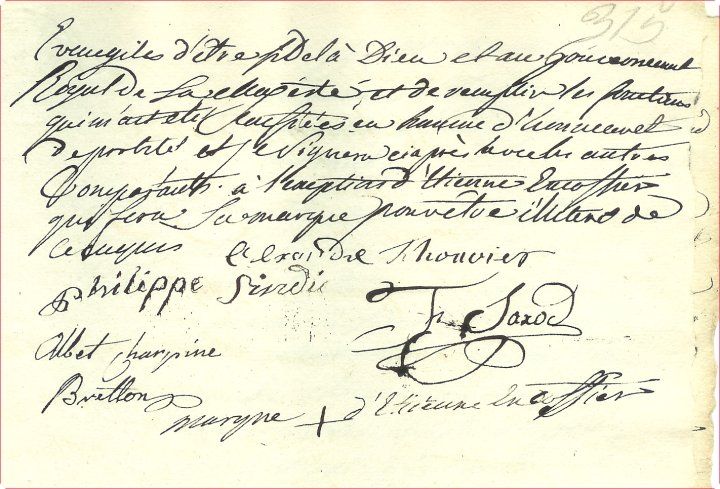 315
Evengiles d'être fidel à Dieu et au Gouvernement
Royal de Sa Majesté et de remplir les fonctions
qui m'ont été confiées en homme d'honneur et
de probité et je signera ci après avec les autres
Comparants à l'exception d'Etienne Encoffier
qui fera Sa marque pour être illitéré de
ce enquis
Alexandre Thouvier
Philippe Girodié
Fr Saxod
Albet Charpine
Bretton
marque + d'Etienne Encoffier